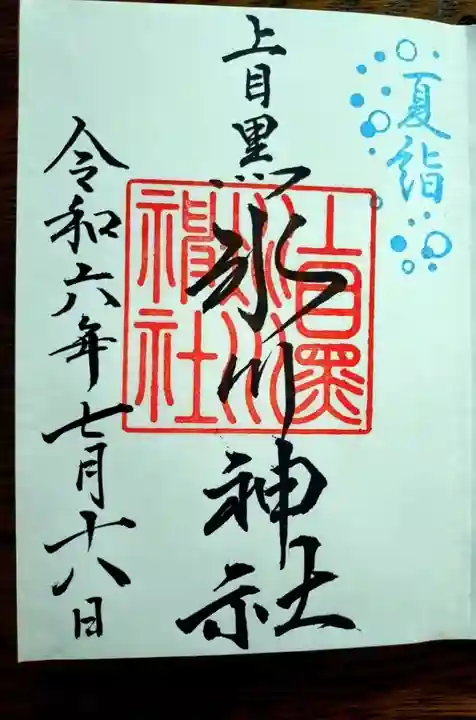 夏詣
上目黒氷川神社
上目黒氷川神社
令和六年七月十八日